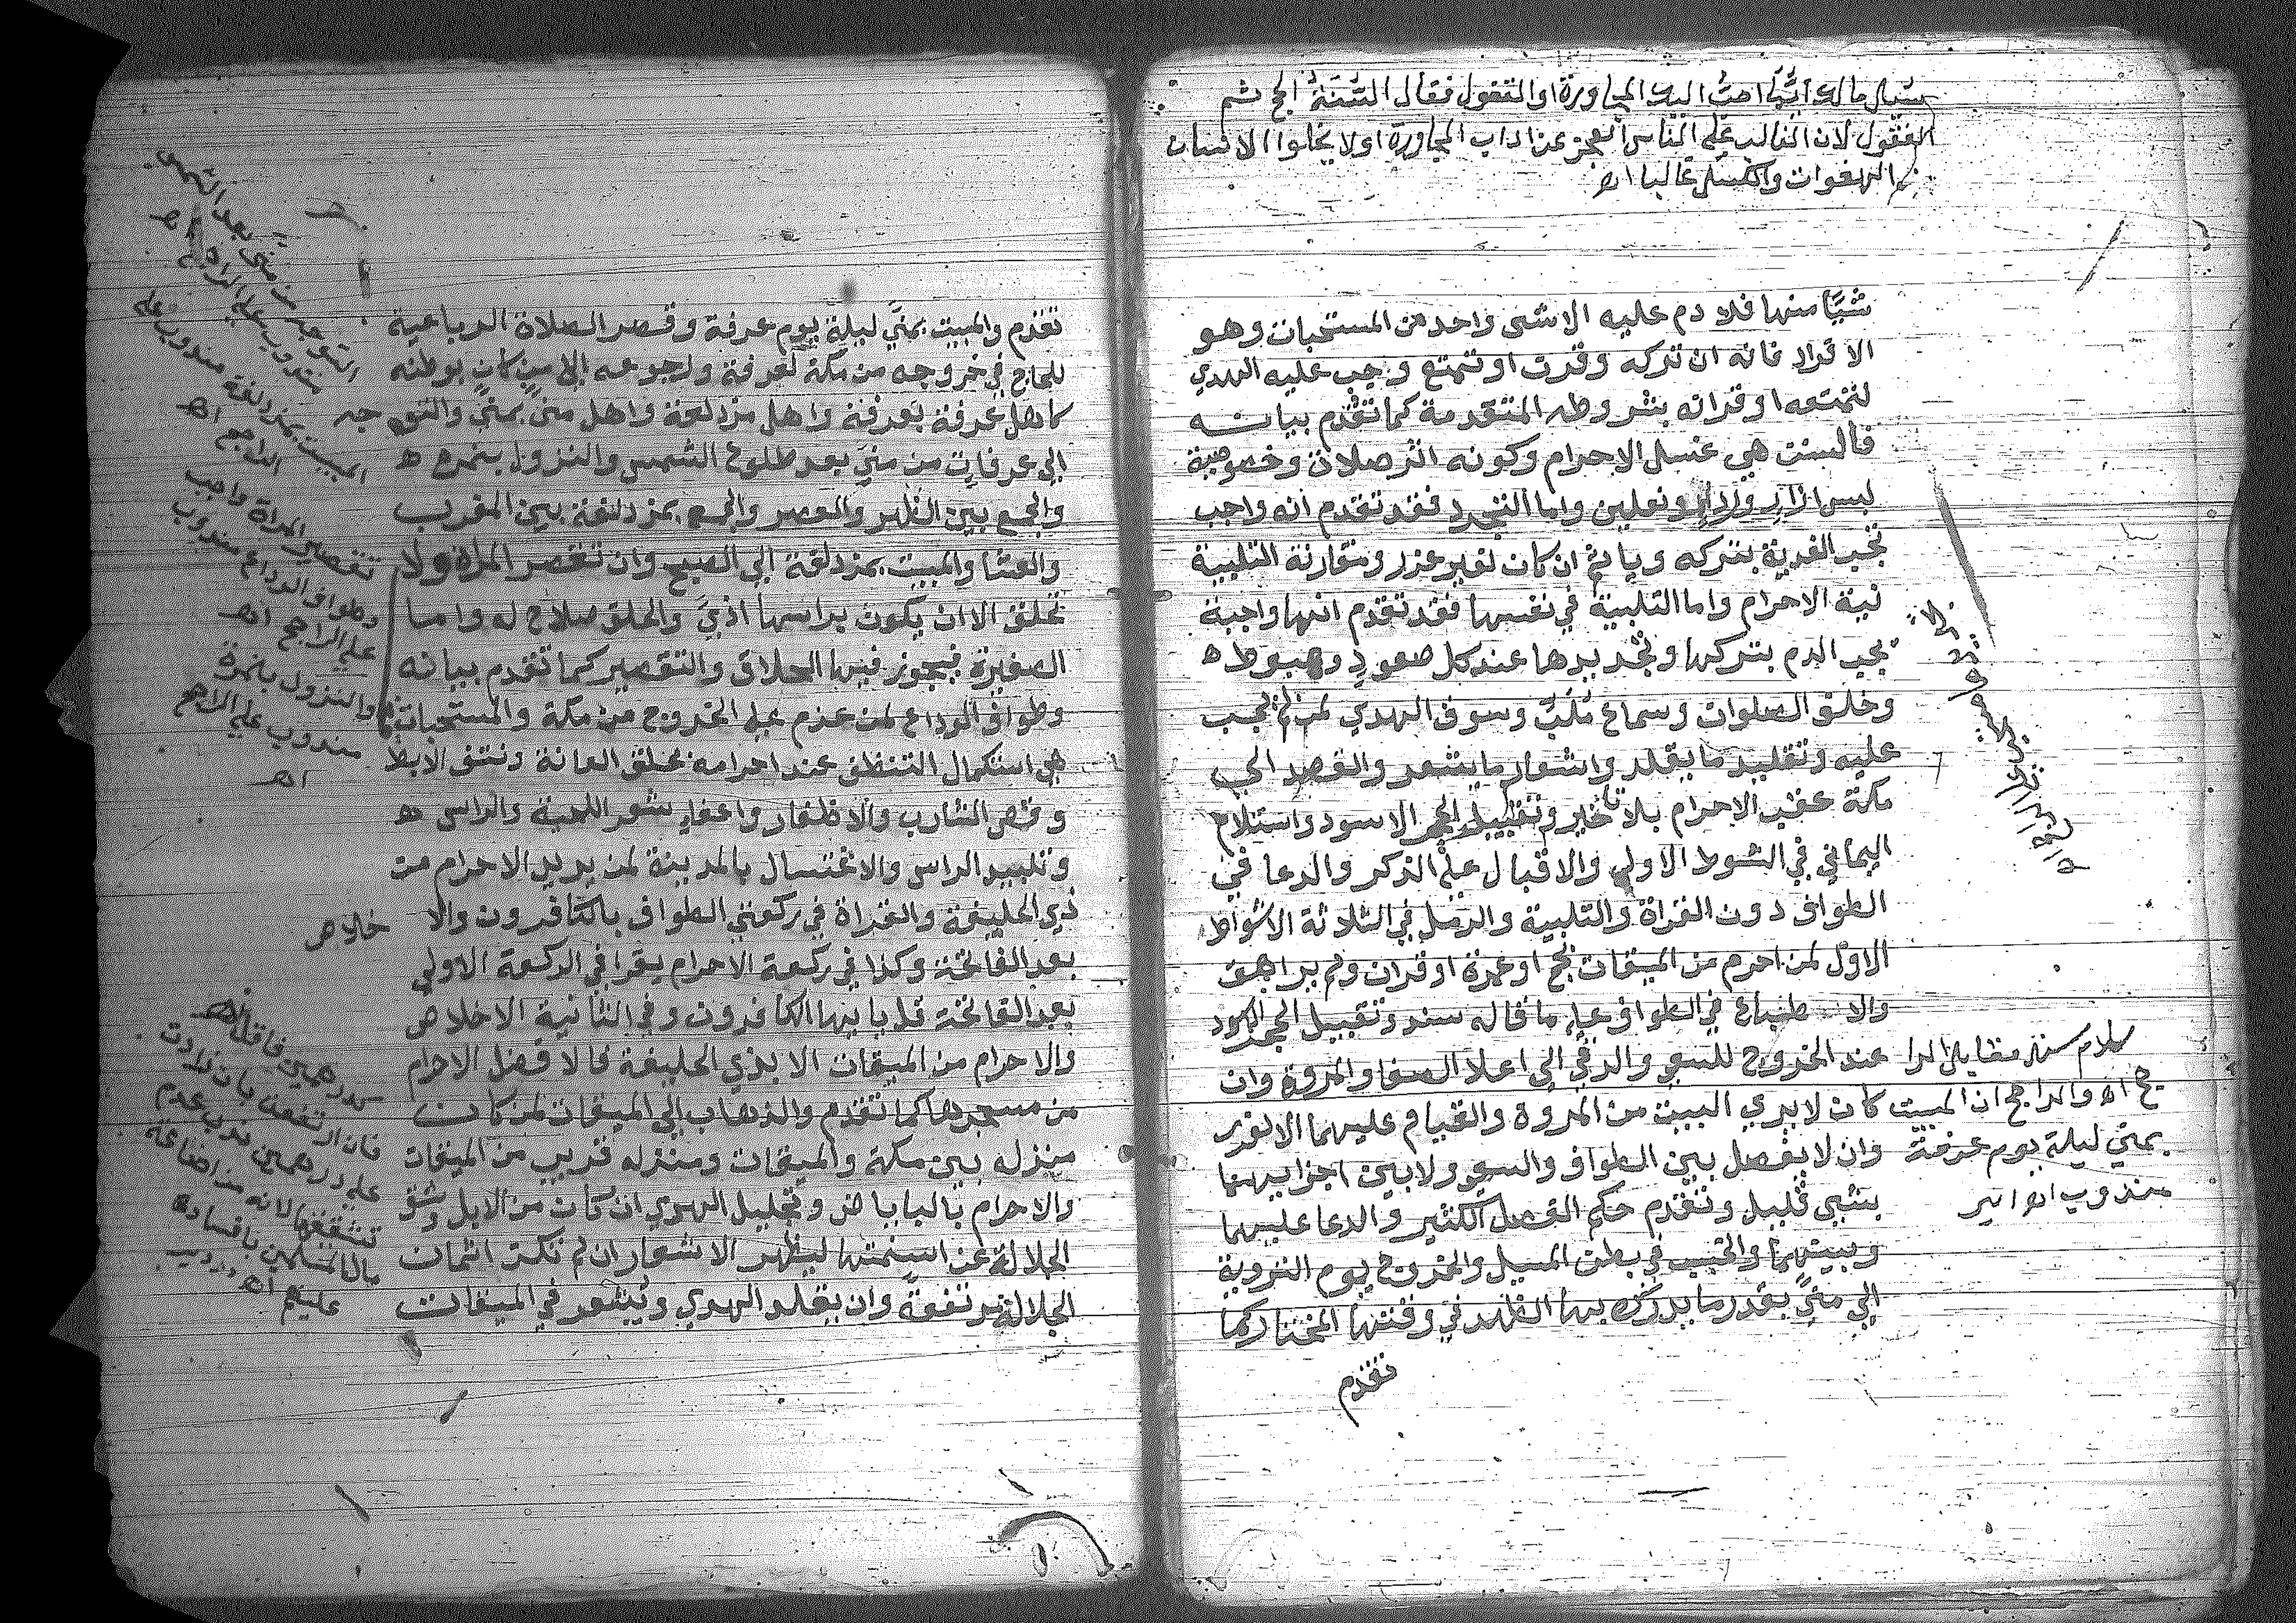 سئل مالك ايما احب اليك المجاورة او القفول فقال السنة الحج ثم
القفول لان الغالب على الناس العجز عن اداب المجاورة اولا يخلوا الانسان
من الهفوات والكسل غالبا اه
شيأ منها فلا دم عليه الا شى واحد من المستحبات وهو
الافراد فانه ان تركه وقرن او تمتع وجب عليه الهدي
لتمتعه او قرانه بشروطه المتقدمة كما تقدم بيانه
فالسنن هي غسل الاحرام وكونه اثر صلاة وخصوصية
لبس ازار وردا ونعلين واما التجرد فقد تقدم انه واجب
تجب الفدية بتركه وياثم ان كان لغير عذر ومقارنة التلبية
نية الاحرام واما التلبية في نفسها فقد تقدم انها واجبة
يجب الدم بتركها وتجديدها عند كل صعود وهبوط ه
وخلف الصلوات وسماع ملب وسوق الهدي لمن لم يجب
عليه وتقليد ما يقلد واشعار ما يشعر والقصد الى
مكة عقب الاحرام بلا تاخير وتقبيل الحجر الاسود واستلام
اليماني في الشوط الاولى والاقبال على الذكر والدعا في
الطواف دون القراة والتلبية والرمل في الثلاثة الاشواط
الاول لمن احرم من الميقات بحج او عمرة او قران ولم يراهق
والاضطباع في الطواف على ما قاله سند وتقبيل الحجر الاسود
عند الخروج للسعي والرقي الى اعلا الصفا والمروة وان
كان لا يري البيت من المروة والقيام عليهما الا لعذر
وان لا يفصل بين الطواف والسعي ولا بين اجزايهما
بشي قليل وتقدم حكم الفصل الكثير والدعا عليهما
وبينهما والخبب في بطن المسيل والخروج يوم التروية
الى منى بقدر ما يدرك بها الظهر في وقتها المختار كما
تقدم
كلام سند مقابل الرا
جح اه والراجح ان المبيت
بمنى ليلة يوم عرفة
مندوب اه
تقدم والمبيت بمنى ليلة يوم عرفة وقصر الصلاة الرباعية
للحاج في خروجه من مكة لعرفة ورجوعه الا من كان بوطنه
كاهل عرفة بعرفة واهل مزدلفة واهل منى بمنى والتوجه
الى عرفات من منى بعد طلوع الشمس والنزول بنمرة ه
والجمع بين الظهر والعصر والجمع بمزدلفة بين المغرب
والعشا والمبيت بمزدلفة الى الصبح وان تقصر المراة ولا
تحلق الا ان يكون براسها اذى والحلق صلاح له واما
الصغيرة فيجوز فيها الحلاق والتقصير كما تقدم بيانه
وطواف الوداع لمن عزم على الخروج من مكة والمستحبات
هي استكمال التنظف عند احرامه بحلق العانة ونتف الابط
وقص الشارب والاظفار واعفا شعر اللحية والراس ه
وتلبيد الراس والاغتسال بالمدينة لمن يريد الاحرام من
ذي الحليفة والقراة في ركعتي الطواف بالكافرون والا خلاص
بعد الفاتحة وكذا في ركعة الاحرام يقرا في الركعة الاولى
بعد الفاتحة قل يا يها الكافرون وفي الثانية الاخلاص
والاحرام من الميقات الا بذي الحليفة فالافضل الاحرام
من مسجدها كما تقدم والذهاب الى الميقات لمن كان
منزله بين مكة والميقات ومنزله قريب من الميقات
والاحرام بالبياض وتجليل الهدي ان كان من الابل وشق
الجلالة عن اسنمتها ليظهر الاشعار ان لم تكن اثمان
الجلالة مرتفعة وان يقلد الهدي ويشعر في الميقات
التوجه من منى بعد الشمس
مندوب على الراجح اه
المبيت بمزدلفة مندوب على
الراجح اه
تقصير المراة واجب
وطواف الوداع مندوب
على الراجح اه
والنزول بنمرة
مندوب على الراجح
اه
كدرهمين فاقل
فان ارتفعت بان زادت
على درهمين ندب عدم
شقها لانه من اضاعة
مال المساكين بافساده
عليهم اه